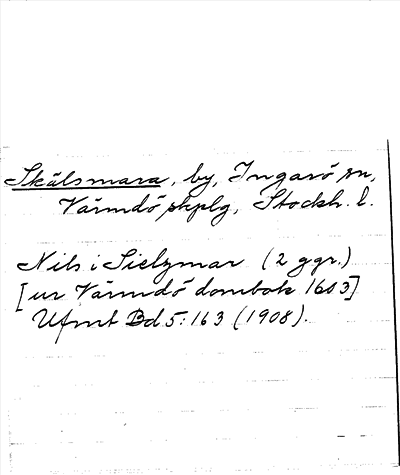 Skälsmara, by, Ingarö sn,
Värmdö skplg, Stockh. l.
Nils i Sielzmar (2 ggr.)
[ur Värmdö dombok 1613]
Ufmt Bd 5:163 (1908).